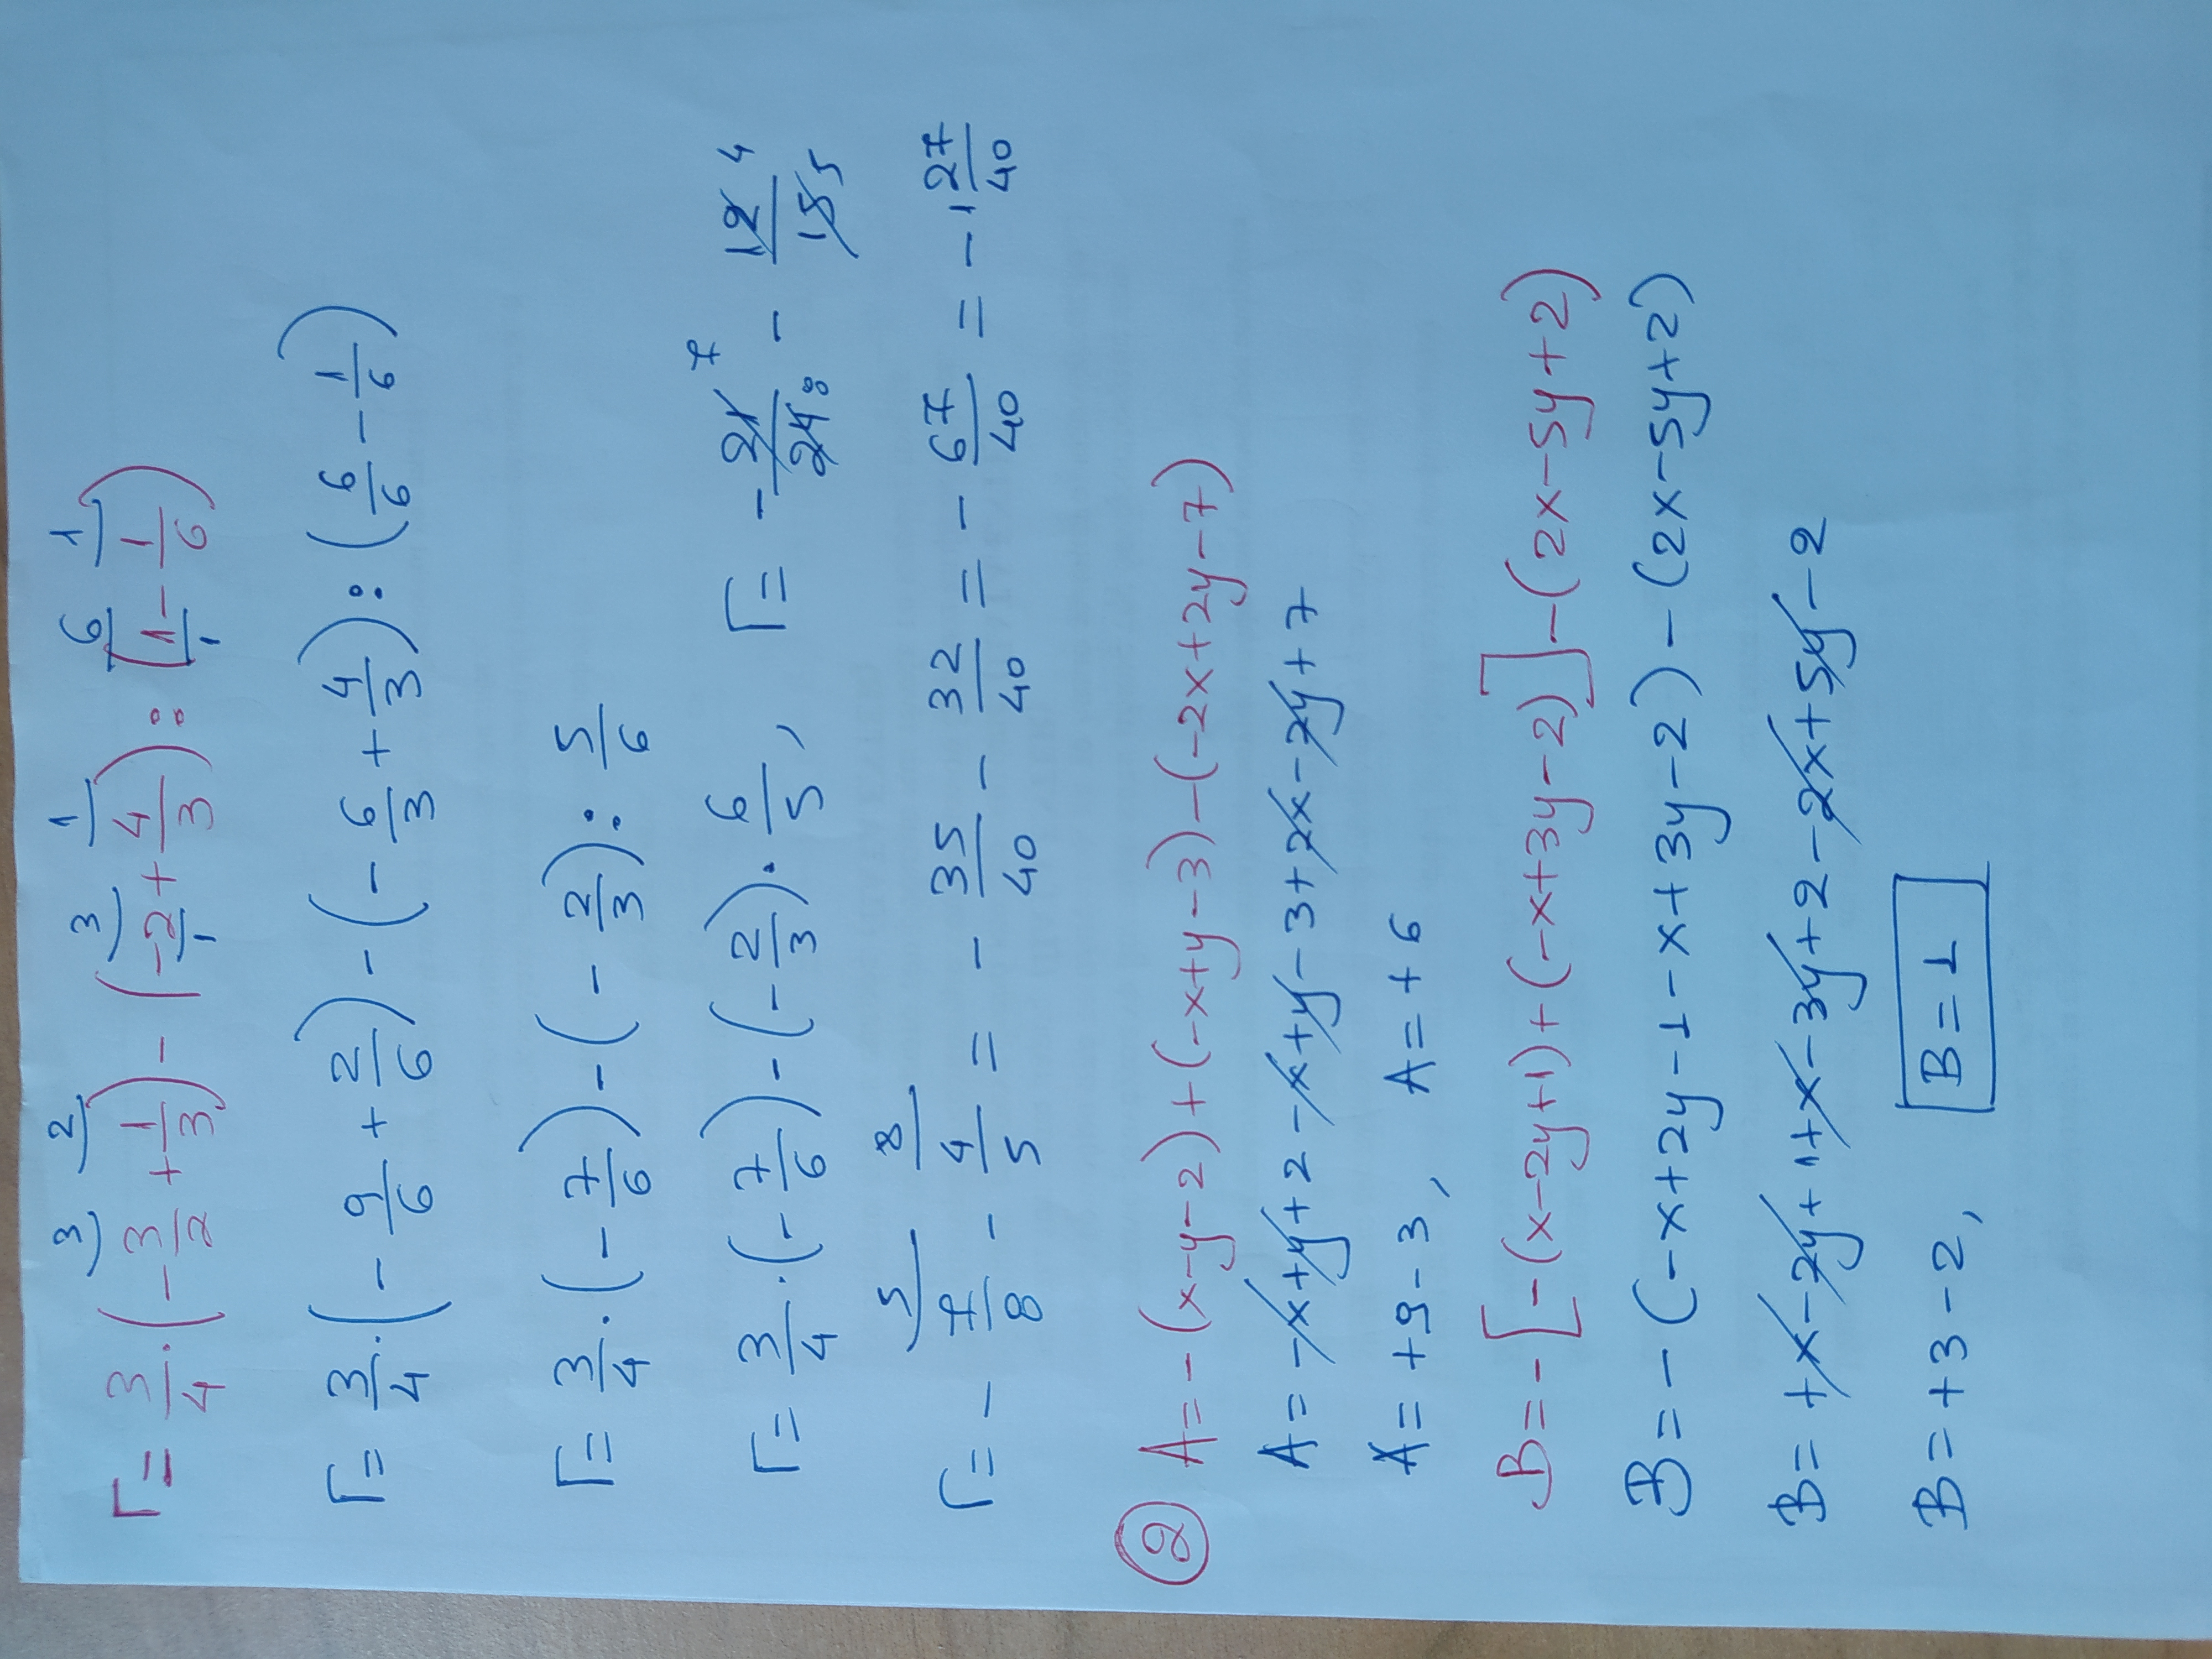 Γ = 3/4 · (-3/2 + 1/3) - (-2/1 + 4/3) : (1/1 - 1/6)
Γ = 3/4 · (-9/6 + 2/6) - (-6/3 + 4/3) : (6/6 - 1/6)
Γ = 3/4 · (-7/6) - (-2/3) : 5/6
Γ = 3/4 · (-7/6) - (-2/3) · 6/5 , Γ = -21/24 - 12/15
Γ = -7/8 - 4/5 = -35/40 - 32/40 = -67/40 = -1 27/40
② A = -(x-y-2)+(-x+y-3)-(-2x+2y-7)
A = -x+y+2-x+y-3+2x-2y+7
A = +9-3 , A = +6
B = -[-(x-2y+1)+(-x+3y-2)]-(2x-5y+2)
B = -(-x+2y-1-x+3y-2)-(2x-5y+2)
B = +x-2y+1+x-3y+2-2x+5y-2
B = +3-2 , B = 1